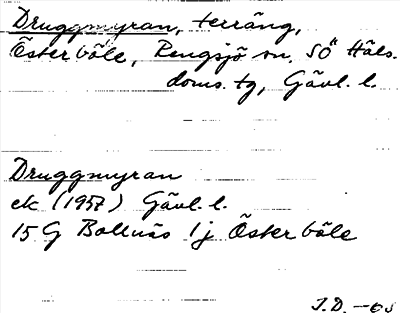 Druggmyran, terräng,
Österböle, Rengsjö sn, SÖ Häls.
doms. tg, Gävl. l.
Druggmyran
ek (1957) Gävl. l.
15 G Bollnäs 1j Österböle
J.D. -65